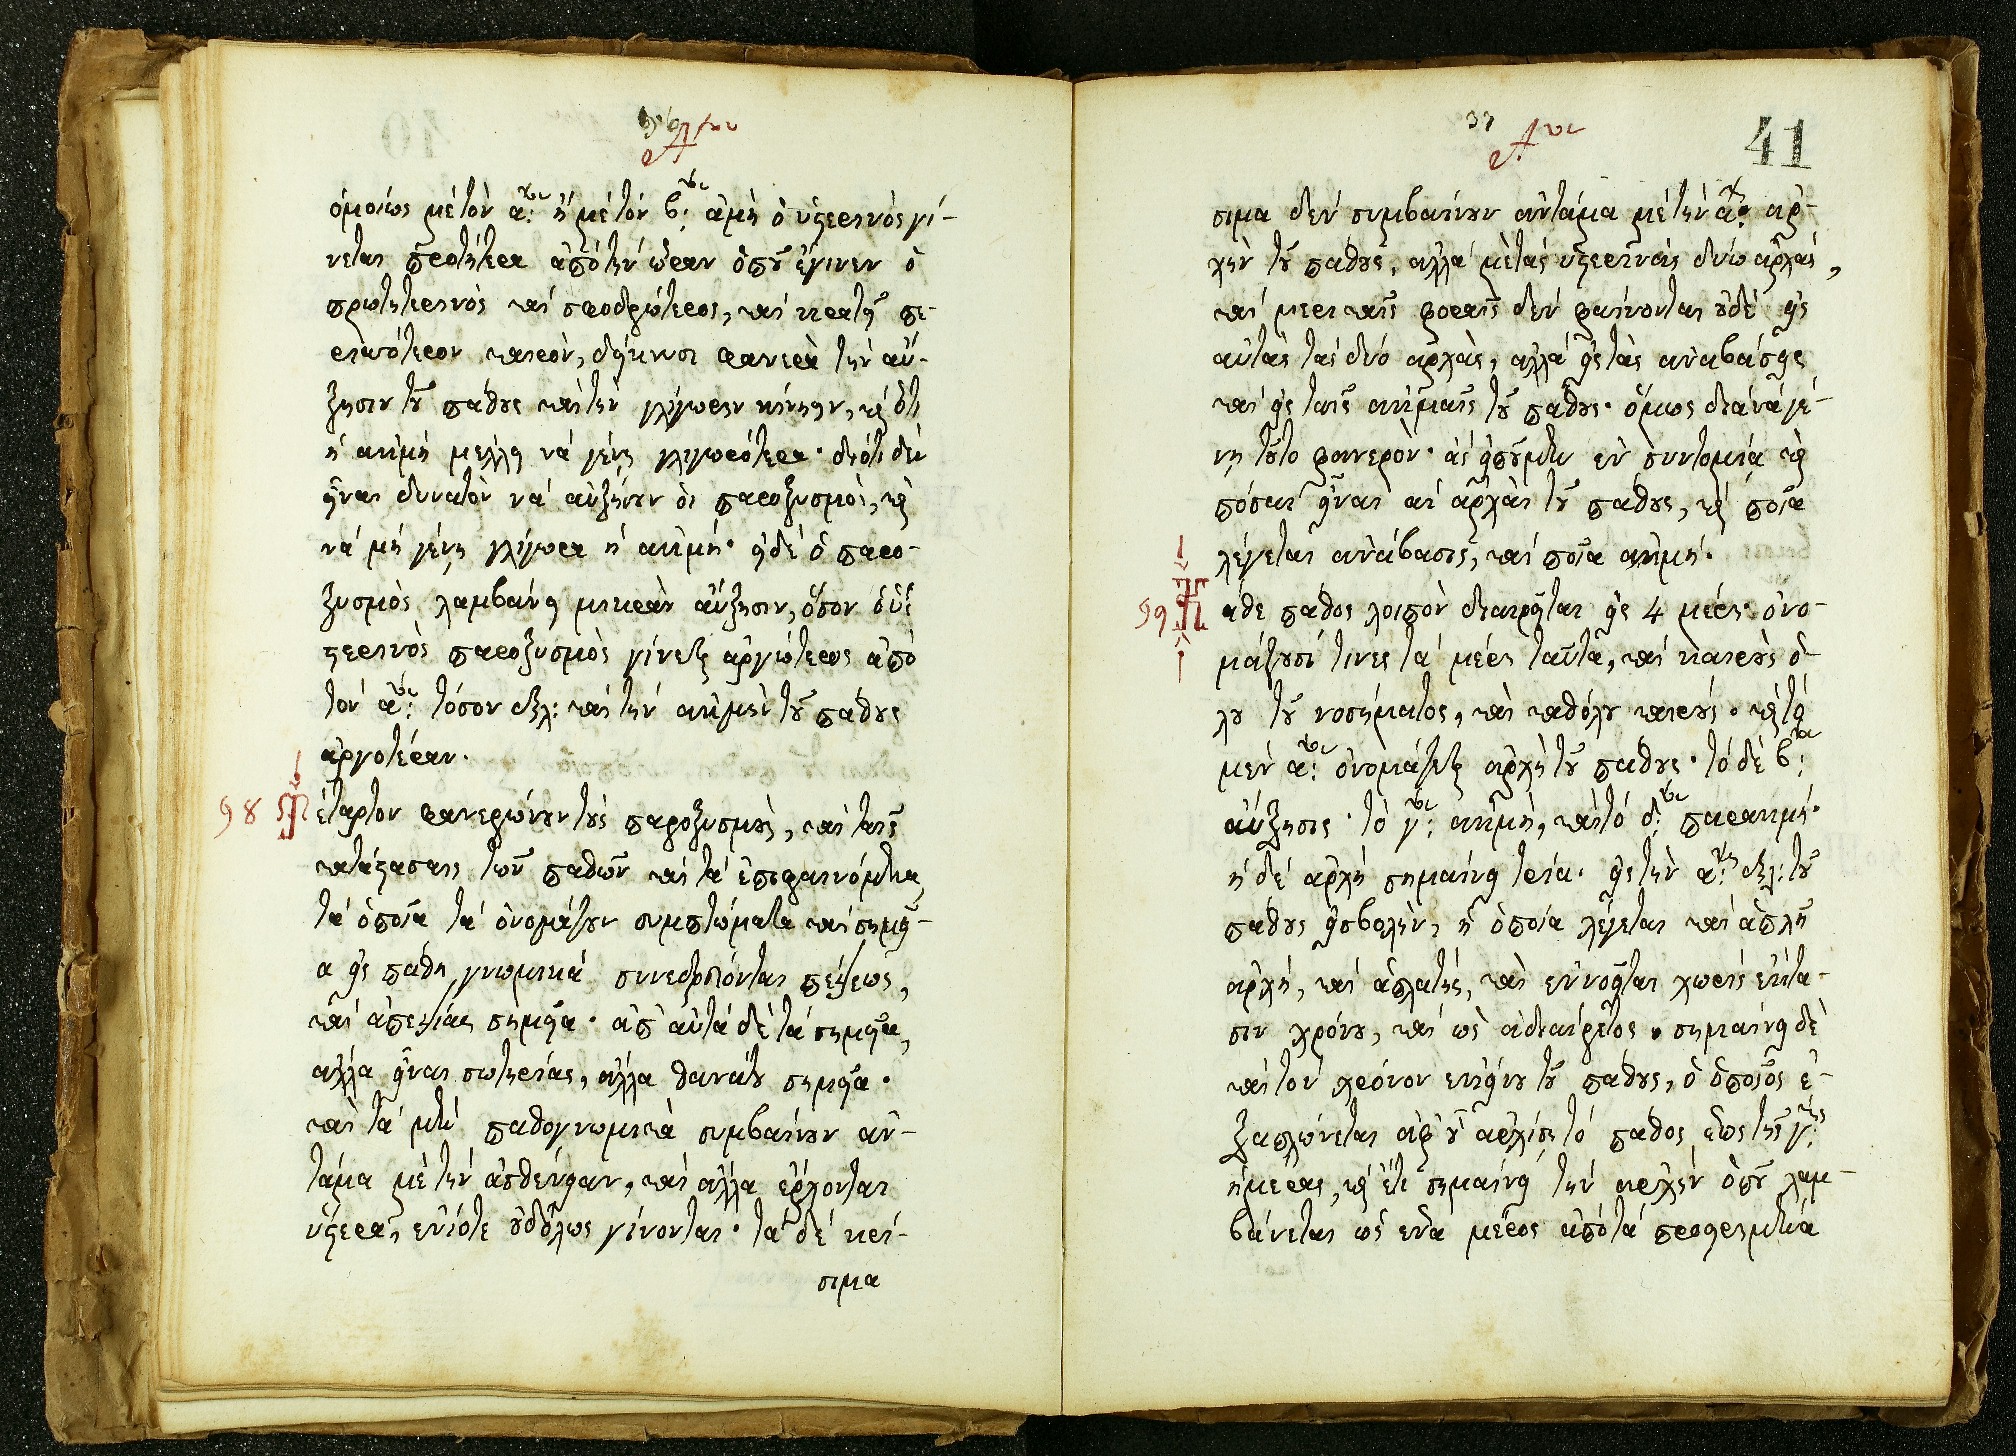 ὁμοίως μὲ τὸν αον: ἢ μὲ τὸν βον: ἀμὴ ὁ ὑστερινὸς γί-
νεται προτήτερα ἀπὸ τὴν ὥραν ὁποῦ ἔγινεν ὁ
πρωτητερινὸς καὶ σφοδρώτερος, καὶ κρατεῖ πε-
ρισσότερον καιρὸν, δείκνυσι φανερὰ τὴν αὔ-
ξησιν τοῦ πάθους καὶ τὴν γλίγωρην κίνησιν, καὶ ὅτι
ἡ ἀκμὴ μέλλει νὰ γένῃ γλιγωρότερα· διότι δὲν
εἶναι δυνατὸν νὰ αὐξήνουν οἱ παροξυσμοὶ, καὶ
νὰ μὴ γένῃ γλίγωρα ἡ ἀκμή· εἰ δὲ ὁ παρο-
ξυσμὸς λαμβάνει μικρὰν αὔξησιν, ὅσον ὁ ὑ-
στερινὸς παροξυσμὸς γίνεται ἀργώτερος ἀπὸ
τὸν αον: τόσον δηλ: καὶ τὴν ἀκμὴν τοῦ πάθους
ἀργοτέραν.
98 Τέταρτον φανερώνουν τοὺς παροξυσμοὺς, καὶ ταῖς
καταστάσαις τῶν παθῶν καὶ τὰ ἐπιφαινόμενα,
τὰ ὁποῖα τὰ ὀνομάζουν συμπτώματα καὶ σημεῖ-
α εἰς πάθη γνωμικὰ συνεδρεύοντας πέψεως,
καὶ ἀπεψίας σημεῖα· ἀπ' αὐτὰ δὲ τὰ σημεῖα,
ἄλλα εἶναι σωτηρίας, ἄλλα θανάτου σημεῖα·
καὶ τὰ μὲν παθογνωμικὰ συμβαίνουν ἀν-
τάμα μὲ τὴν ἀσθένειαν, καὶ ἄλλα ἔρχονται
ὕστερα, ἐνίοτε οὐδόλως γίνονται· τὰ δὲ κρί-
σιμα
37
41
σιμα δὲν συμβαίνουν ἀντάμα μὲ τὴν αην ἀρ-
χὴν τοῦ πάθους, ἀλλὰ μὲ ταὶς ὑστεριναὶς δύω ἀρχαὶς,
καὶ μερικαῖς φοραῖς δὲν φαίνονται οὐδὲ εἰς
αὐταὶς ταὶς δύο ἀρχὰς, ἀλλὰ εἰς τὰς ἀναβάσεις
καὶ εἰς ταῖς ἀκμαῖς τοῦ πάθους· ὅμως διὰ νὰ γέ-
νῃ τοῦτο φανερὸν· ἂς εἰποῦμεν ἐν συντομίᾳ καὶ
πόσαι εἶναι αἱ ἀρχαὶ τοῦ πάθους, καὶ ποῖα
λέγεται ἀνάβασις, καὶ ποῖα ἀκμή.
99 Πᾶθε πάθος λοιπὸν διαιρεῖται εἰς 4 μέρη· ὀνο-
μάζουσί τινες τὰ μέρη ταῦτα, καὶ καιροὺς ὅ-
λου τοῦ νοσήματος, καὶ καθόλου καιρούς· καὶ τὸ
μὲν αον: ὀνομάζεται ἀρχὴ τοῦ πάθους· τὸ δὲ βον:
αὔξησις· τὸ γον: ἀκμὴ, καὶ τὸ δον: παρακμή·
ἡ δὲ ἀρχὴ σημαίνει τρία· εἰς τὴν αην: δηλ: τοῦ
πάθους εἰσβολὴν, ἡ ὁποία λέγεται καὶ ἁπλῆ
ἀρχὴ, καὶ ἀπλατὴς, καὶ ἐννοεῖται χωρὶς ἔκτα-
σιν χρόνου, καὶ ὡς ἀδιαίρετος· σημαίνει δὲ
καὶ τὸν χρόνον ἐκείνου τοῦ πάθους, ὁ ὁποῖος ἐ-
ξαπλώνεται ἀφ' οὗ ἀρχίσῃ τὸ πάθος ἕως τῆς γης:
ἡμέρας, καὶ ἔτι σημαίνει τὴν ἀρχὴν ὁποῦ λαμ-
βάνεται ὡς ἕνα μέρος ἀπὸ τὰ προῃρημένα